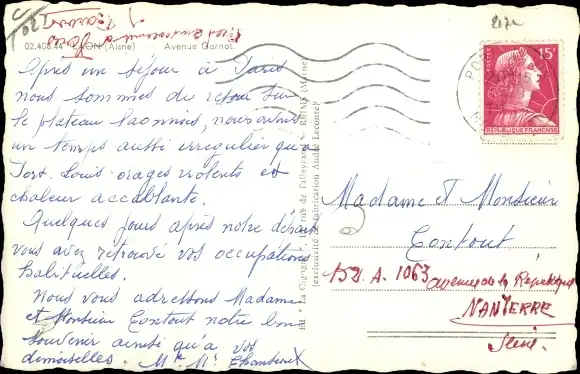 02.408.44 LAON (Aisne) Avenue Carnot.
Après un séjour à Paris
nous sommes de retour sur
le plateau laonnois, nous avons
un temps aussi irregulier qu'à
Port. Louis. orages violents et
chaleur accablante.
Quelques jours après notre départ
vous avez retrouvé vos occupations
habituelles.
Nous vous adressons Madame
et Monsieur Contout notre bon
souvenir ainsi qu'à vos
demoiselles. Me Mr
Ed. " La Cigogne " rue de Talleyrand - REIMS (Marne)
(exclusivité de fabrication André Leconte)
15F
POSTES
RÉPUBLIQUE FRANÇAISE
Madame et Monsieur
Contout
152 A. 1063 avenue de la République
NANTERRE
Seine.